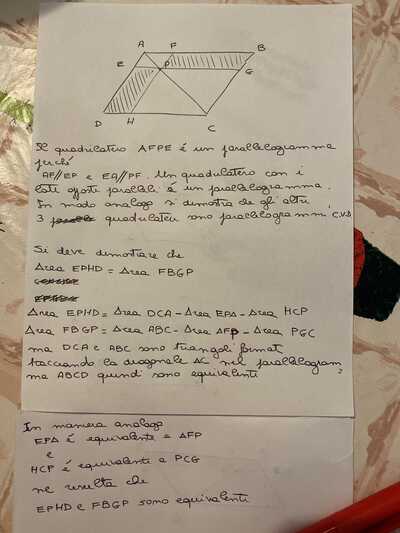 A F B
E P G
D H C
Il quadrilatero AFPE è un parallelogramma
perché
AF//EP e EA//PF. Un quadrilatero con i
lati opposti paralleli è un parallelogramma.
In modo analogo si dimostra che gli altri
3 quadrilateri sono parallelogrammi, C.V.D
Si deve dimostrare che
Area EPHD = Area FBGP
Area EPHD = Area DCA - Area EPA - Area HCP
Area FBGP = Area ABC - Area AFP - Area PGC
ma DCA e ABC sono triangoli formati
tracciando la diagonale AC nel parallelogram
ma ABCD quindi sono equivalenti
In maniera analoga
EPA è equivalente a AFP
e
HCP è equivalente a PCG
ne risulta che
EPHD e FBGP sono equivalenti